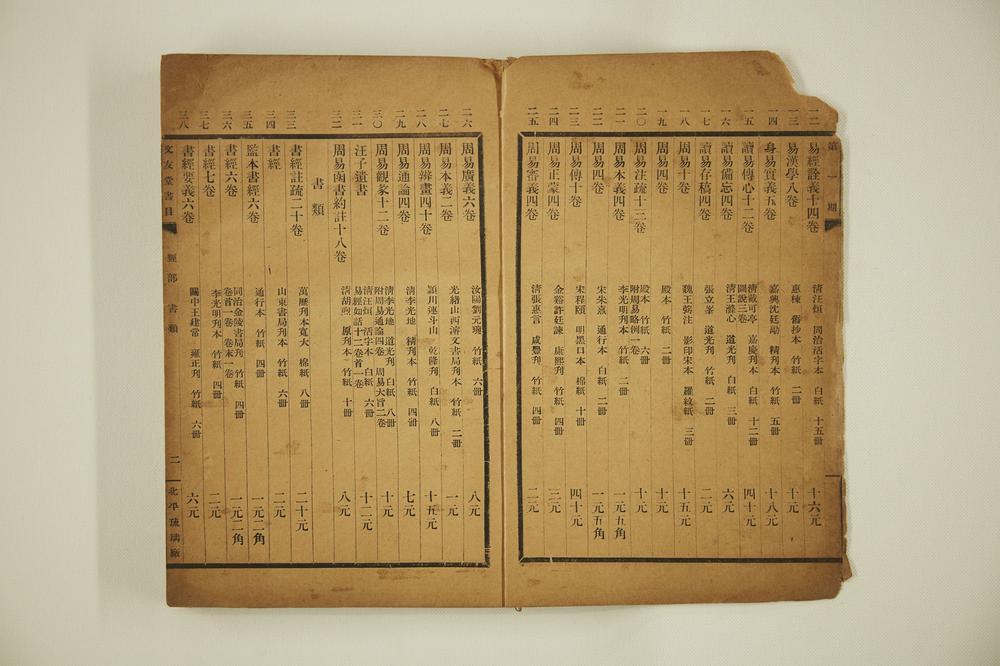 第一期
一二 易經詮義十四卷 清汪烜 同治活字本 白紙 十五冊 十六元
一三 易漢學八卷 惠棟 舊抄本 竹紙 二冊 十元
一四 身易實義五卷 嘉興沈廷勱 精刊本 竹紙 五冊 十八元
一五 讀易傳心十二卷 圖說三卷 清戴可亭 嘉慶刊本 白紙 十二冊 四十元
一六 讀易備忘四卷 清王滌心 道光刋 白紙 三冊 六元
一七 讀易存稿四卷 張立峯 道光刋 竹紙 二冊 二元
一八 周易十卷 魏王弼注 影印宋本 羅紋紙 三冊 十五元
一九 周易四卷 殿本 竹紙 二冊 十元
二〇 周易注疏十三卷 附周易略例一卷 殿本 竹紙 六冊 十元
二一 周易本義四卷 李光明刊本 竹紙 二冊 一元五角
二二 周易四卷 宋朱熹 通行本 白紙 二冊 一元五角
二三 周易傳十卷 宋程頤 明黑口本 棉紙 十冊 四十元
二四 周易正蒙四卷 金谿許廷諫 康熙刋 竹紙 四冊 三元
二五 周易審義四卷 清張惠言 咸豐刋 竹紙 四冊 二元
二六 周易廣義六卷 汝陽劉元琬 竹紙 六冊 八元
二七 周易本義二卷 光緒山西濬文書局刋本 竹紙 二冊 一元
二八 周易辨畫四十卷 潁川連斗山 乾隆刋 白紙 八冊 十五元
二九 周易通論四卷 清李光地 精刊本 竹紙 四冊 七元
三〇 周易觀彖十二卷 附周易通論四卷 周易大旨二卷 清李光地 道光刋 白紙 八冊 十元
三一 汪子遺書 易經如話十二卷首一卷 清汪烜 活字本 白紙 六冊 十二元
三二 周易函書約註十八卷 清胡煦 原刋本 竹紙 十冊 八元
書類
三三 書經註疏二十卷 萬曆刋本寬大 棉紙 八冊 二十元
三四 書經 山東書局刋本 竹紙 六冊 二元
三五 監本書經六卷 通行本 竹紙 四冊 一元二角
三六 書經六卷 卷首一卷 卷末一卷 同治金陵書局刋 竹紙 四冊 一元二角
三七 書經七卷 李光明刊本 竹紙 四冊 二元
三八 書經要義六卷 關中王建常 雍正刋 竹紙 六冊 六元
文友堂書目 經部 書類 二 北平琉璃廠